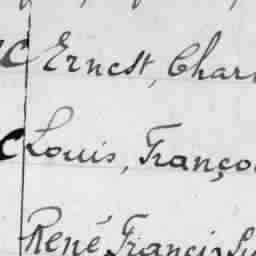 c Ernest, Char
c Louis, Franço
René Francis